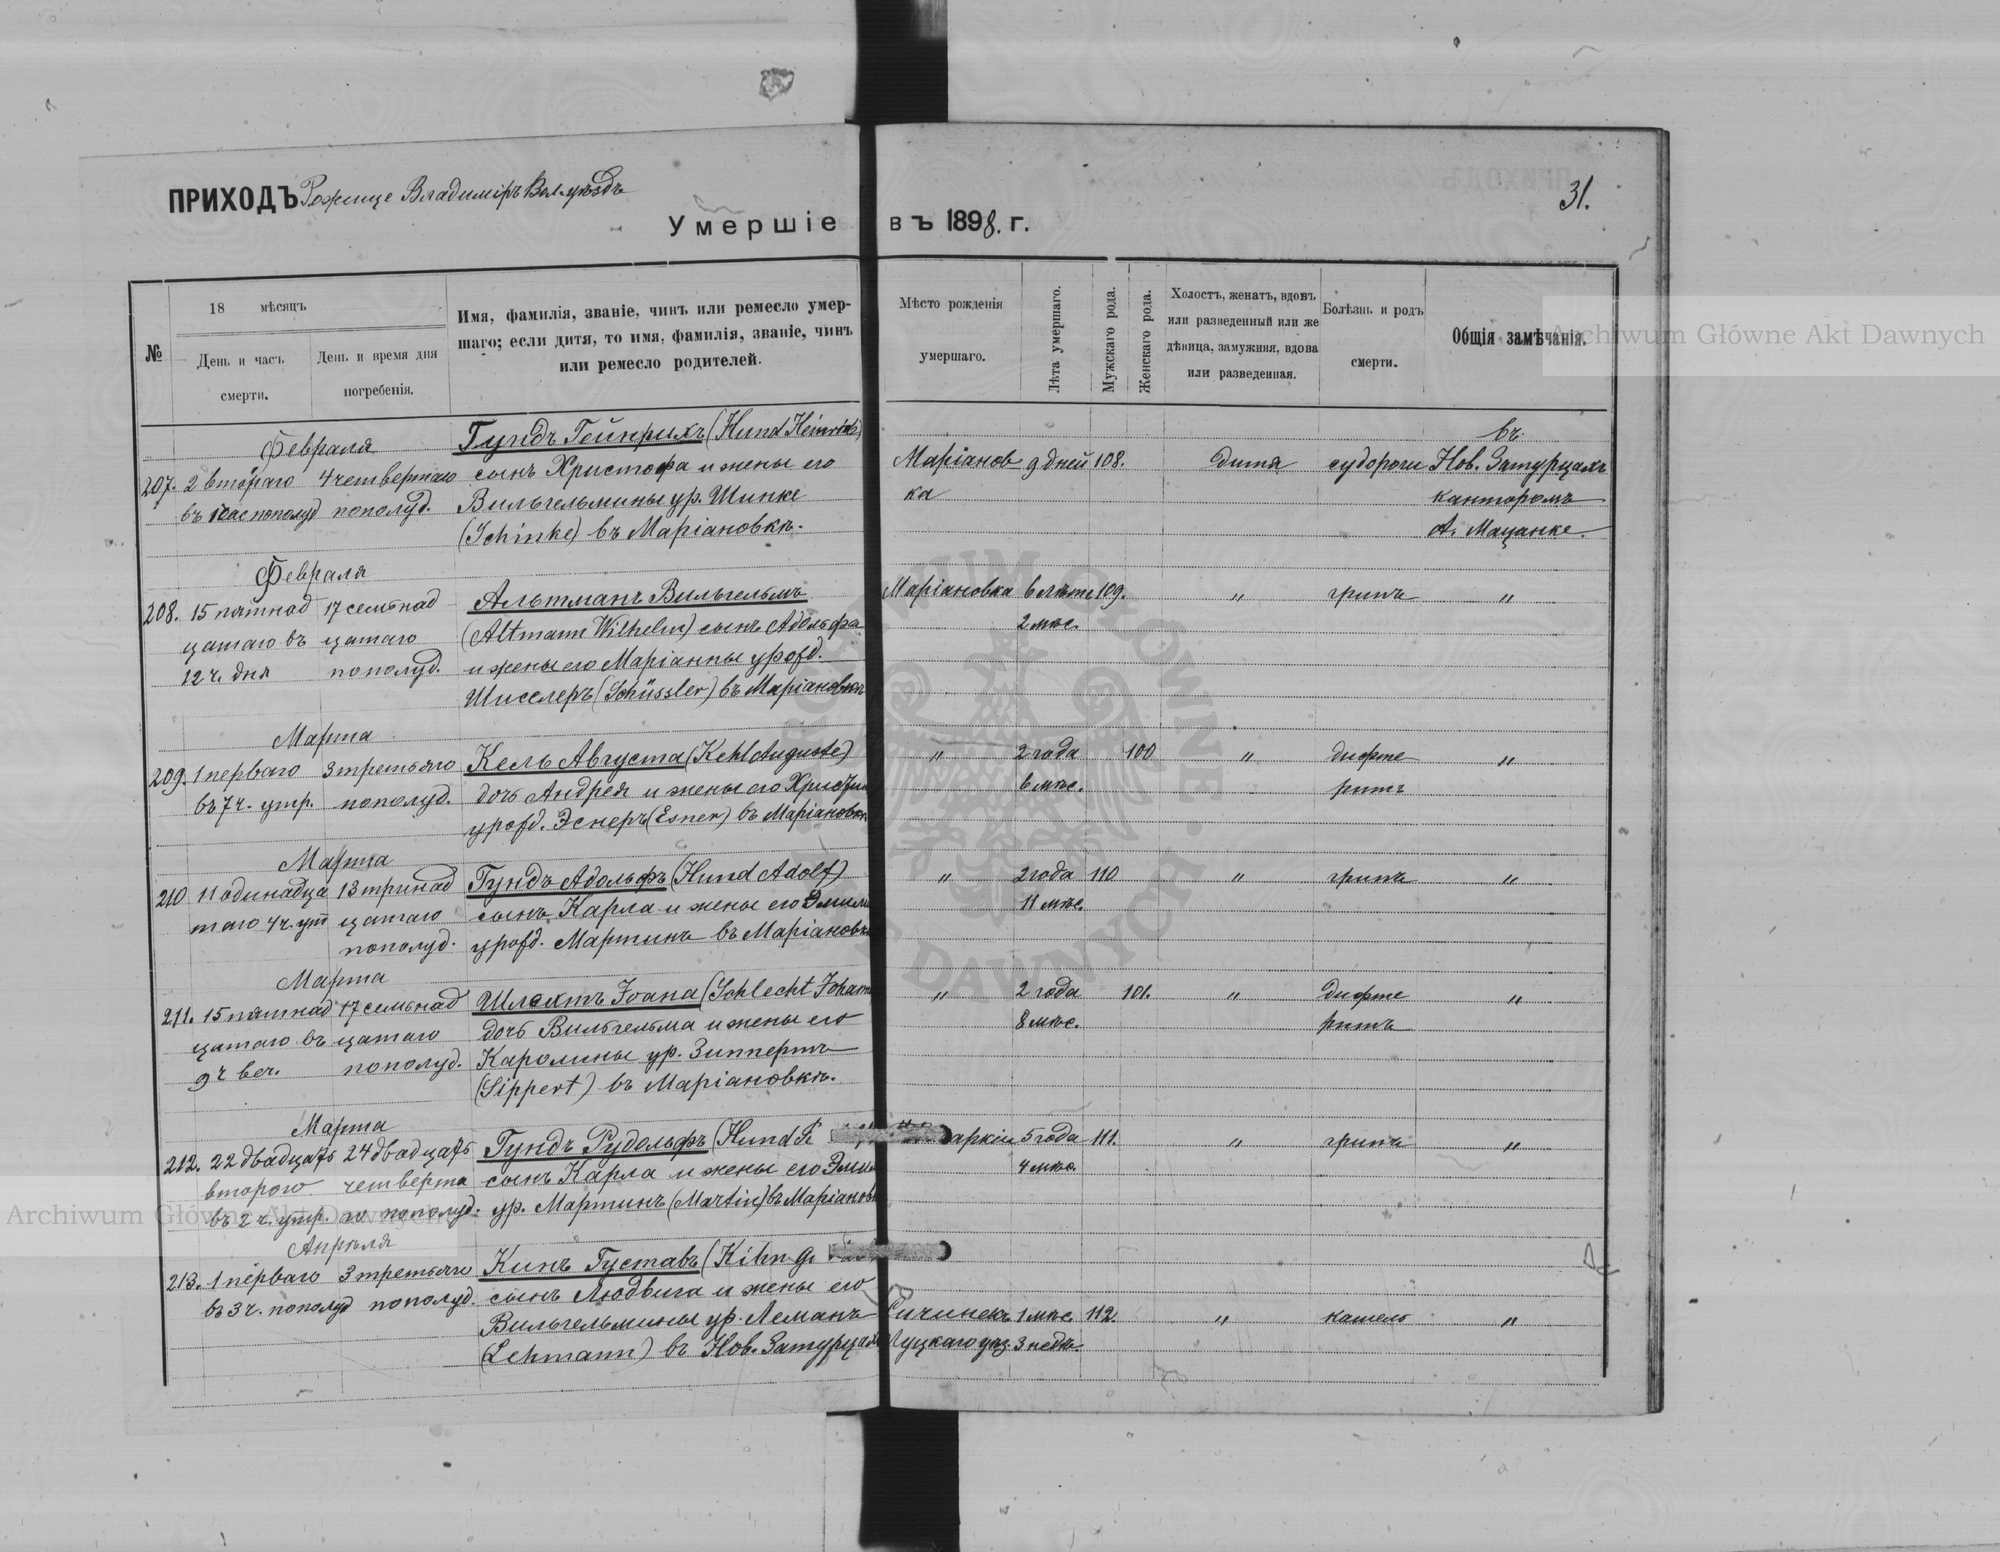 ПРИХОДЪ Рожище Владиміръ Вол. уѣздъ
31.
Умершіе въ 1898. г.
№
18 мѣсяцъ
День и часъ смерти.
День и время дня погребенія.
Имя, фамилія, званіе, чинъ или ремесло умер-
шаго; если дитя, то имя, фамилія, званіе, чинъ
или ремесло родителей.
Мѣсто рожденія
умершаго.
Лѣта умершаго.
Мужскаго рода.
Женскаго рода.
Холостъ, женатъ, вдовъ
или разведенный или же
дѣвица, замужняя, вдова
или разведенная.
Болѣзнь и родъ
смерти.
Общія замѣчанія.
Archiwum Główne Akt Dawnych
Февраля Гундъ Гейнрихъ (Hund Heinrich) въ
207. 2 втораго 4 четвертаго сынъ Христофа и жены его Маріанов 9 дней 108. дитя судороги Нов. Затурцахъ
въ 10 час пополуд пополуд. Вильгельмины ур. Шинке ка канторомъ
(Schinke) въ Маріановкѣ. А. Мацанке.
Февраля
208. 15 пятнад 17 семьнад Альтманъ Вильгельмъ Маріановка 6 лѣтъ 109. " грипъ "
цатаго въ цатаго (Altmann Wilhelm) сынъ Адольфа 2 мѣс.
12 ч. дня пополуд. и жены его Маріанны урожд.
Шисслеръ (Schüssler) въ Маріановкѣ
Марта
209. 1 перваго 3 третьяго Кель Августа (Kehl Auguste) " 2 года 100 " дифте "
въ 7 ч. утр. пополуд. дочь Андрея и жены его 6 мѣс. ритъ
урожд. Эснеръ (Esner) въ Маріановкѣ
Марта
210 11 одинадца 13 тринад Гундъ Адольфъ (Hund Adolf) " 2 года 110 " грипъ "
таго 4 ч. ут цатаго сынъ Карла и жены его 11 мѣс.
пополуд. урожд. Мартинъ въ Маріановкѣ
Марта
211. 15 пятнад 17 семьнад Шлехтъ Іоана (Schlecht " 2 года 101. " дифте "
цатаго въ цатаго дочь Вильгельма и жены его 8 мѣс. ритъ
9 ч веч. пополуд. Каролины ур. Зиппертъ
(Sippert) въ Маріановкѣ.
Марта
212. 22 двадцать 24 двадцать Гундъ Рудольфъ (Hund 5 года 111. " грипъ "
второго четверта сынъ Карла и жены его 4 мѣс.
въ 2 ч. утр. го пополуд. ур. Мартинъ (Martin) въ
Апрѣля
213. 1 перваго 3 третьяго Кинъ Густавъ (Kihn
въ 3 ч. пополуд пополуд. сынъ Людвига и жены его
Вильгельмины ур. Леманъ 1 мѣс. 112. " кашель "
(Lehmann) въ Нов. Затурцахъ Луцкаго уѣз. 3 недѣ.
Archiwum Główne Akt Dawnych